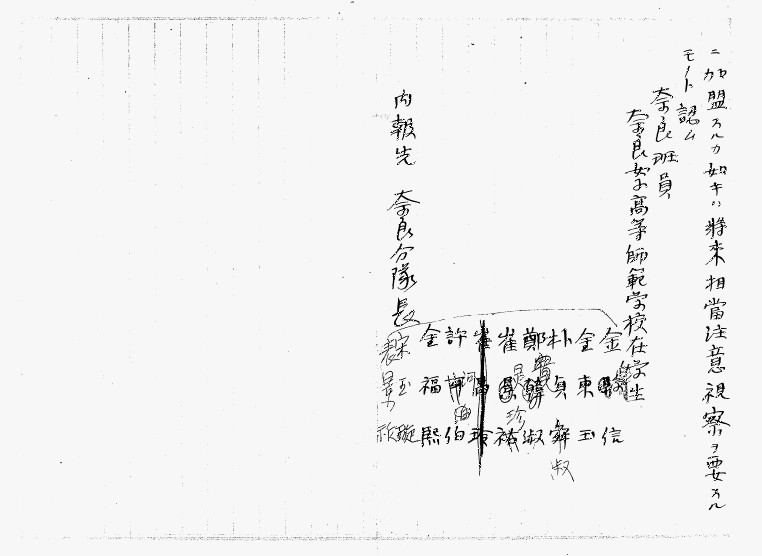 ニ加盟スルカ如キハ将来相當注意視察ヲ要スル
モノト認ム
奈良班員
奈良女子高等師範学校在学生
金 信
金東玉
朴貞 淑
鄭 淑
崔 珍
崔
許 伯
金福熙
宋玉璇
裵景
内報先 奈良分隊長